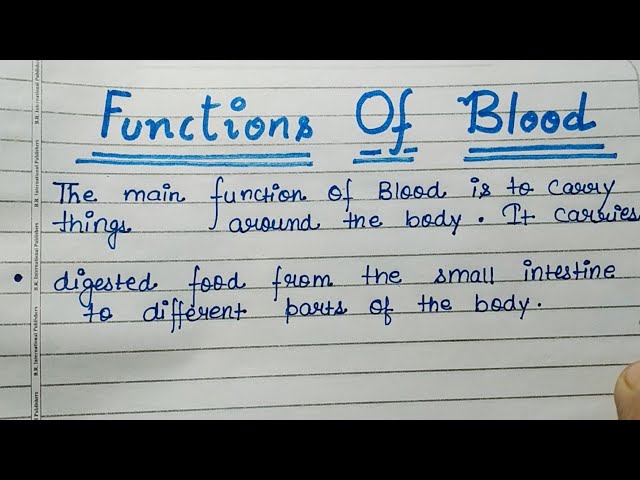 Functions Of Blood
The main function of Blood is to carry
things around the body. It carries
• digested food from the small intestine
to different parts of the body.
R.K. International Publishers
R.K. International Publishers
R.K. International Publishers
R.K. International Publishers
Publishers